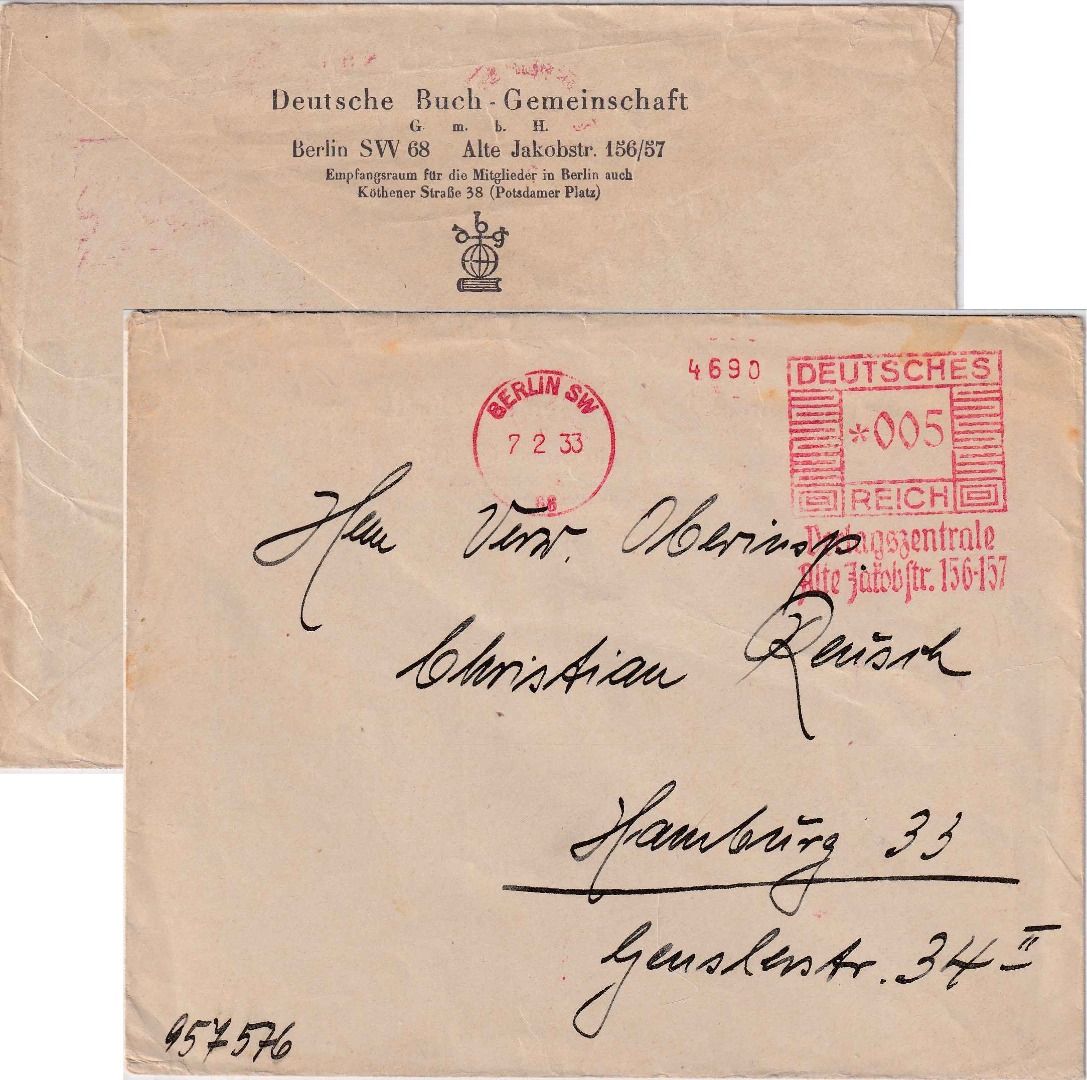 Deutsche Buch-Gemeinschaft
G. m. b. H.
Berlin SW 68 Alte Jakobstr. 156/57
Empfangsraum für die Mitglieder in Berlin auch
Köthener Straße 38 (Potsdamer Platz)
dbg
BERLIN SW
7 2 33
68
4690
DEUTSCHES
*005
REICH
Verlagszentrale
Alte Jakobstr. 156-157
Herrn Verw. Oberinsp.
Christian Reusch
Hamburg 33
Genslerstr. 34 II
957576